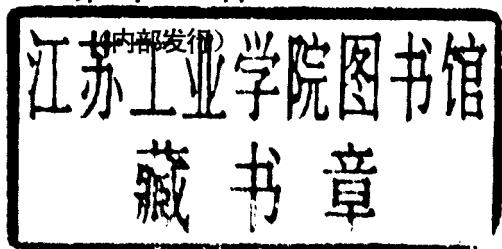 (内部发行)
江苏工业学院图书馆
藏书章